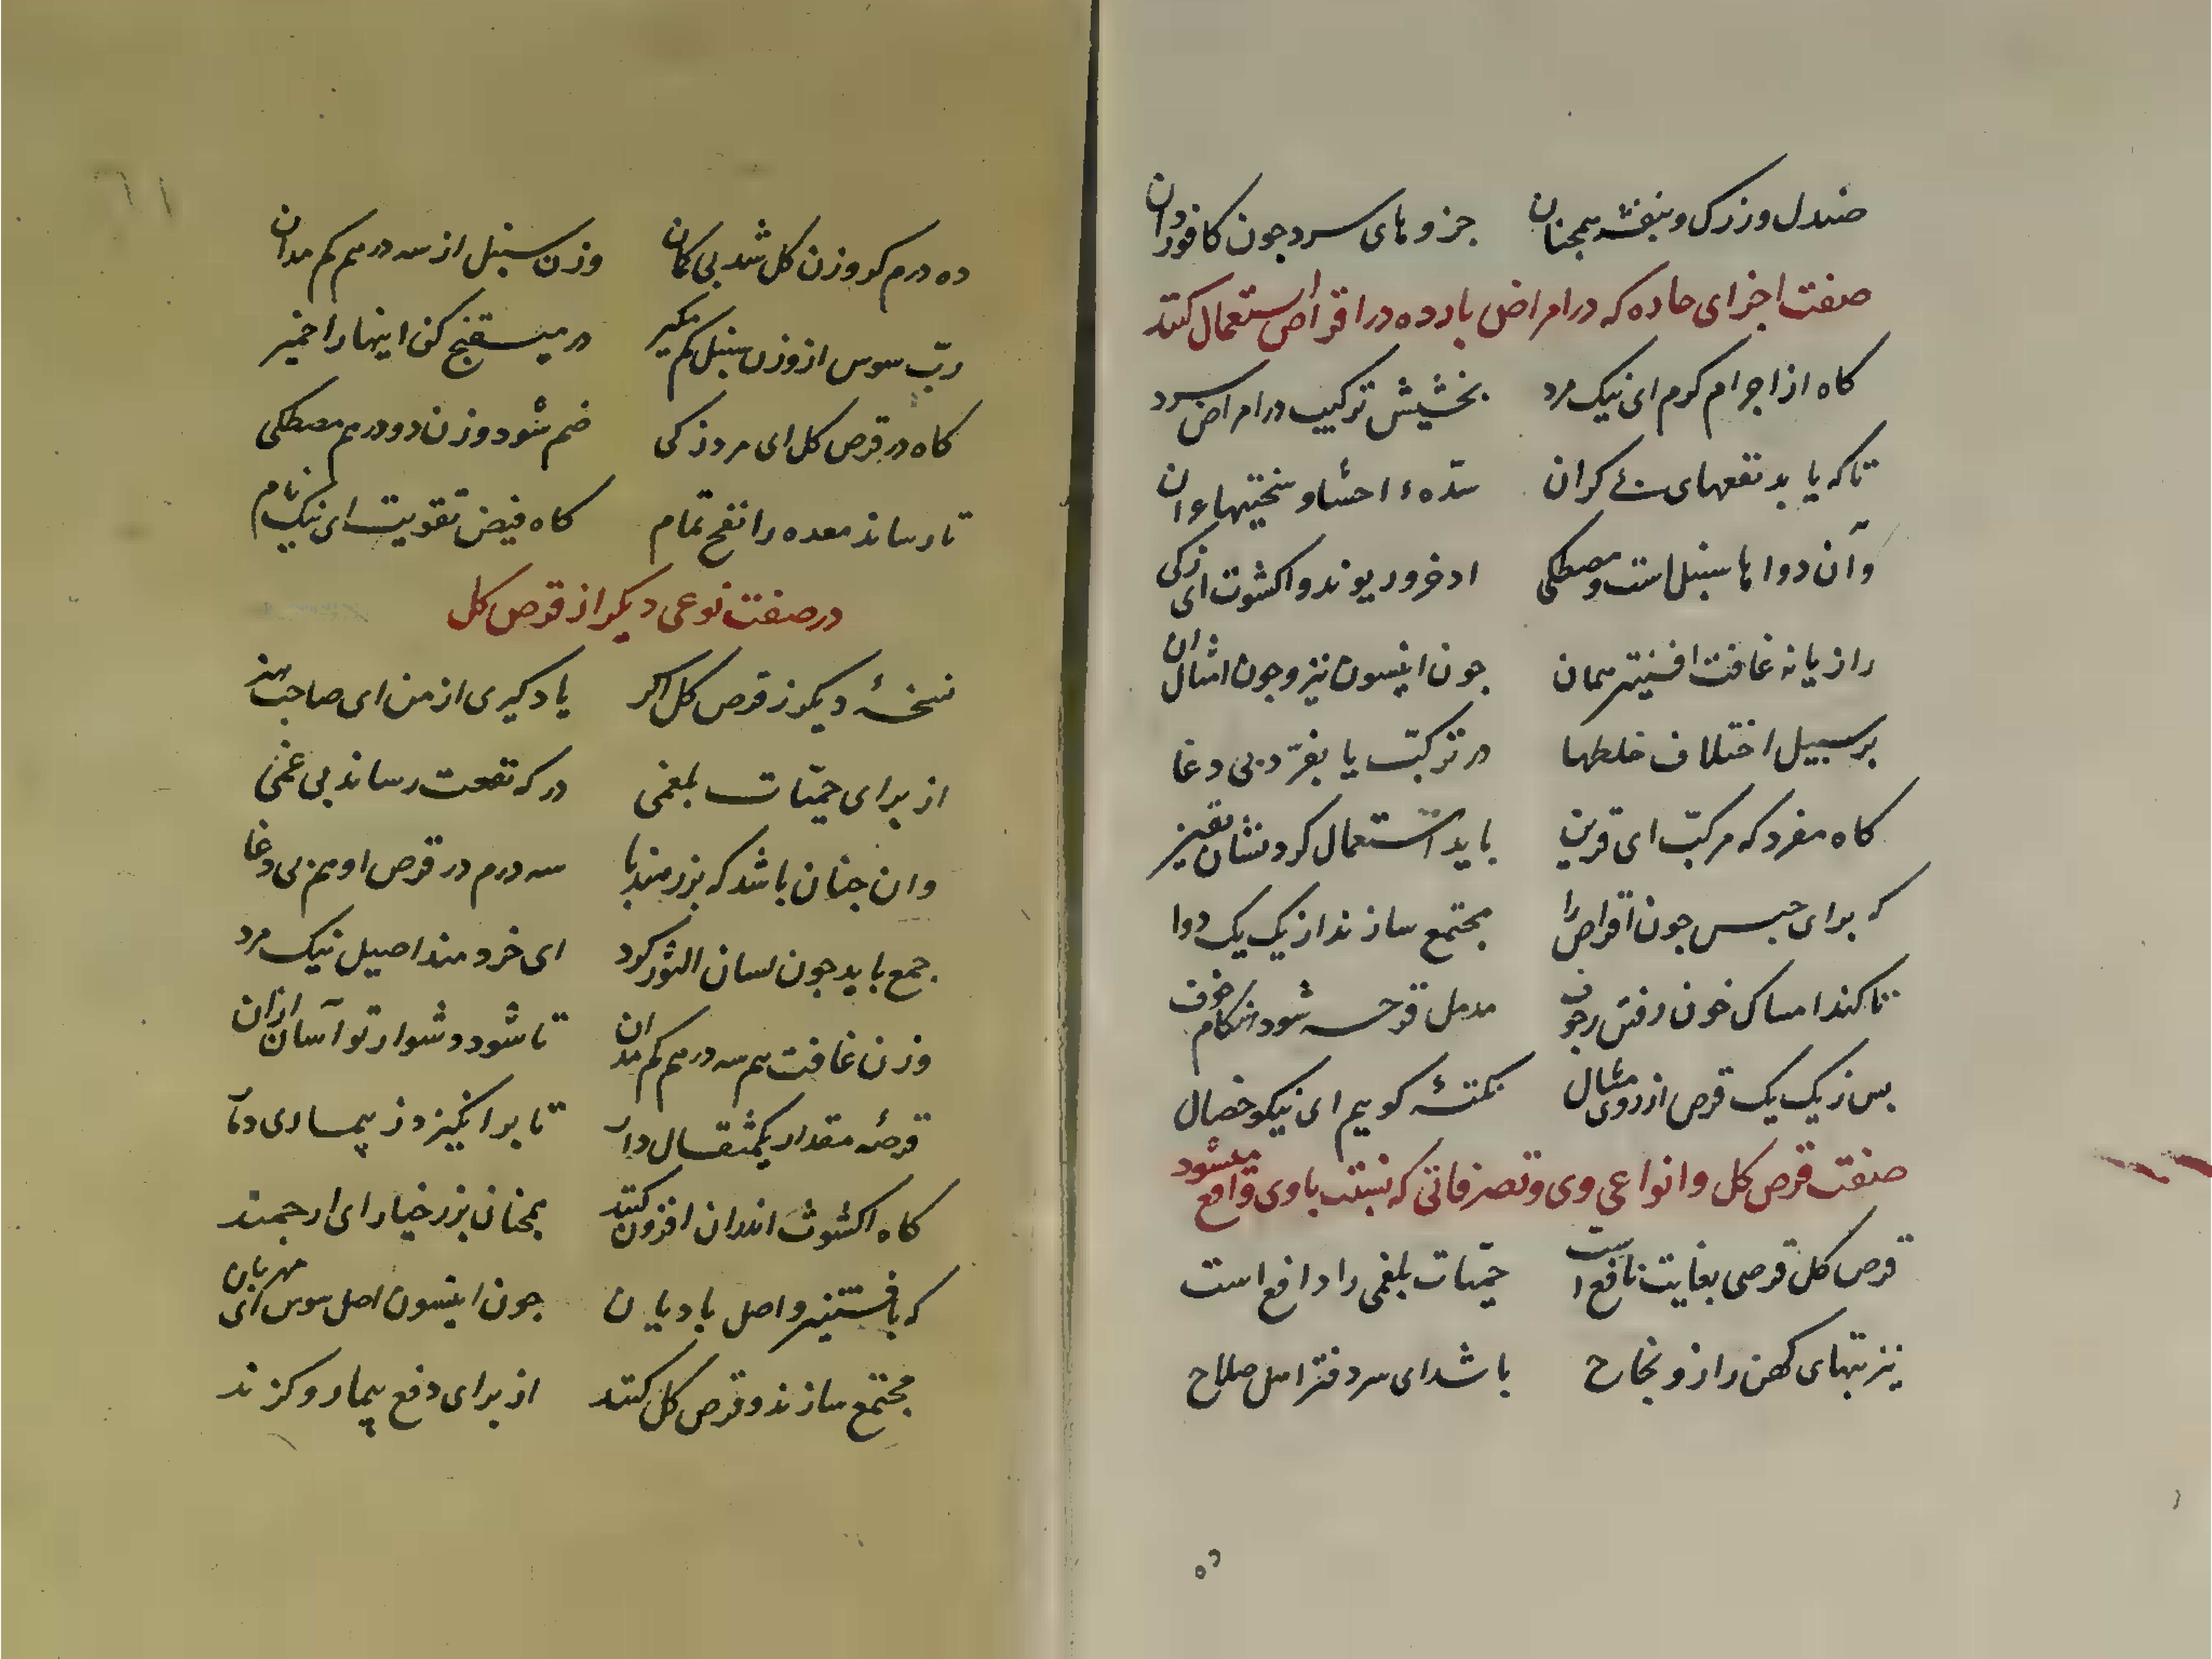 صندل و زرک و بنفشه همچنان جزوهای سرد چون کافور دان
صفت اجزای حاده که در امراض بارده در اقراص استعمال کنند
کاه از اجرام کرم ای نیک مرد بخشیش ترکیب در امراض سرد
تا که یابد نفعهای بی کران سدهٔ احشا و سختیها
وآن دواها سنبل است و مصطکی ادخر و ریوند و اکشوت ای زکی
رازیانه غافت افسنتین همان جون انیسون نیز و جون امثال ان
بر سبیل اختلاف خلطها در ترکب یا بفرد بی دغا
کاه مفرد که مرکب ای قرین باید استعمال کرد
که برای حبس جون اقراص را مجتمع سازند از یک یک دوا
تا کند امساک خون رفتن مدمل قرحه شود هنکام خوف
بس ز یک یک قرص از روی مثال نکتهٔ کویم ای نیکو خصال
صفت قرص کل و انواعی وی و تصرفاتی که نسبت باوی واقع میشود
قرص کل قرصی بغایت نافع است حمیات بلغمی را دافع است
نیز تبهای کهن را زو نجاح باشد ای سردفتر اهل صلاح
ده درم کر وزن کل شد بی کمان وزن سنبل از سه درهم کم مدان
رب سوس از وزن سنبل کم مکیر در میبسقنج کن اینها را خمیر
کاه در قرص کل ای مرد زکی ضم شود وزن دو درهم مصطکی
تا رساند معده را نفح تمام کاه فیض تقویت ای نیک نام
در صفت نوعی دیکر از قرص کل
نسخهٔ دیکر ز قرص کل اکر یاد کیری از من ای صاحب هنر
از برای حمیات بلغمی درکه نفعت رساند بی غمی
وان جنان باشد که بزر هندبا سه درم در قرص او هم بی دغا
جمع باید جون لسان الثور کرد ای خردمند اصیل نیک مرد
وزن غافت هم سه درهم کم مدان تا شود دشوار تو آسان ازان
قرصهٔ مقدار یکمثقال دار تا برانکیزد ز بیماری دمار
کاه اکشوث اندران افزون کنند همچنان بزر خیار ای ارجمند
که بافسنتین و اصل بادیان جون انیسون اصل سوس ای مهربان
مجتمع سازند و قرص کل کنند از برای دفع بیمار و کزند